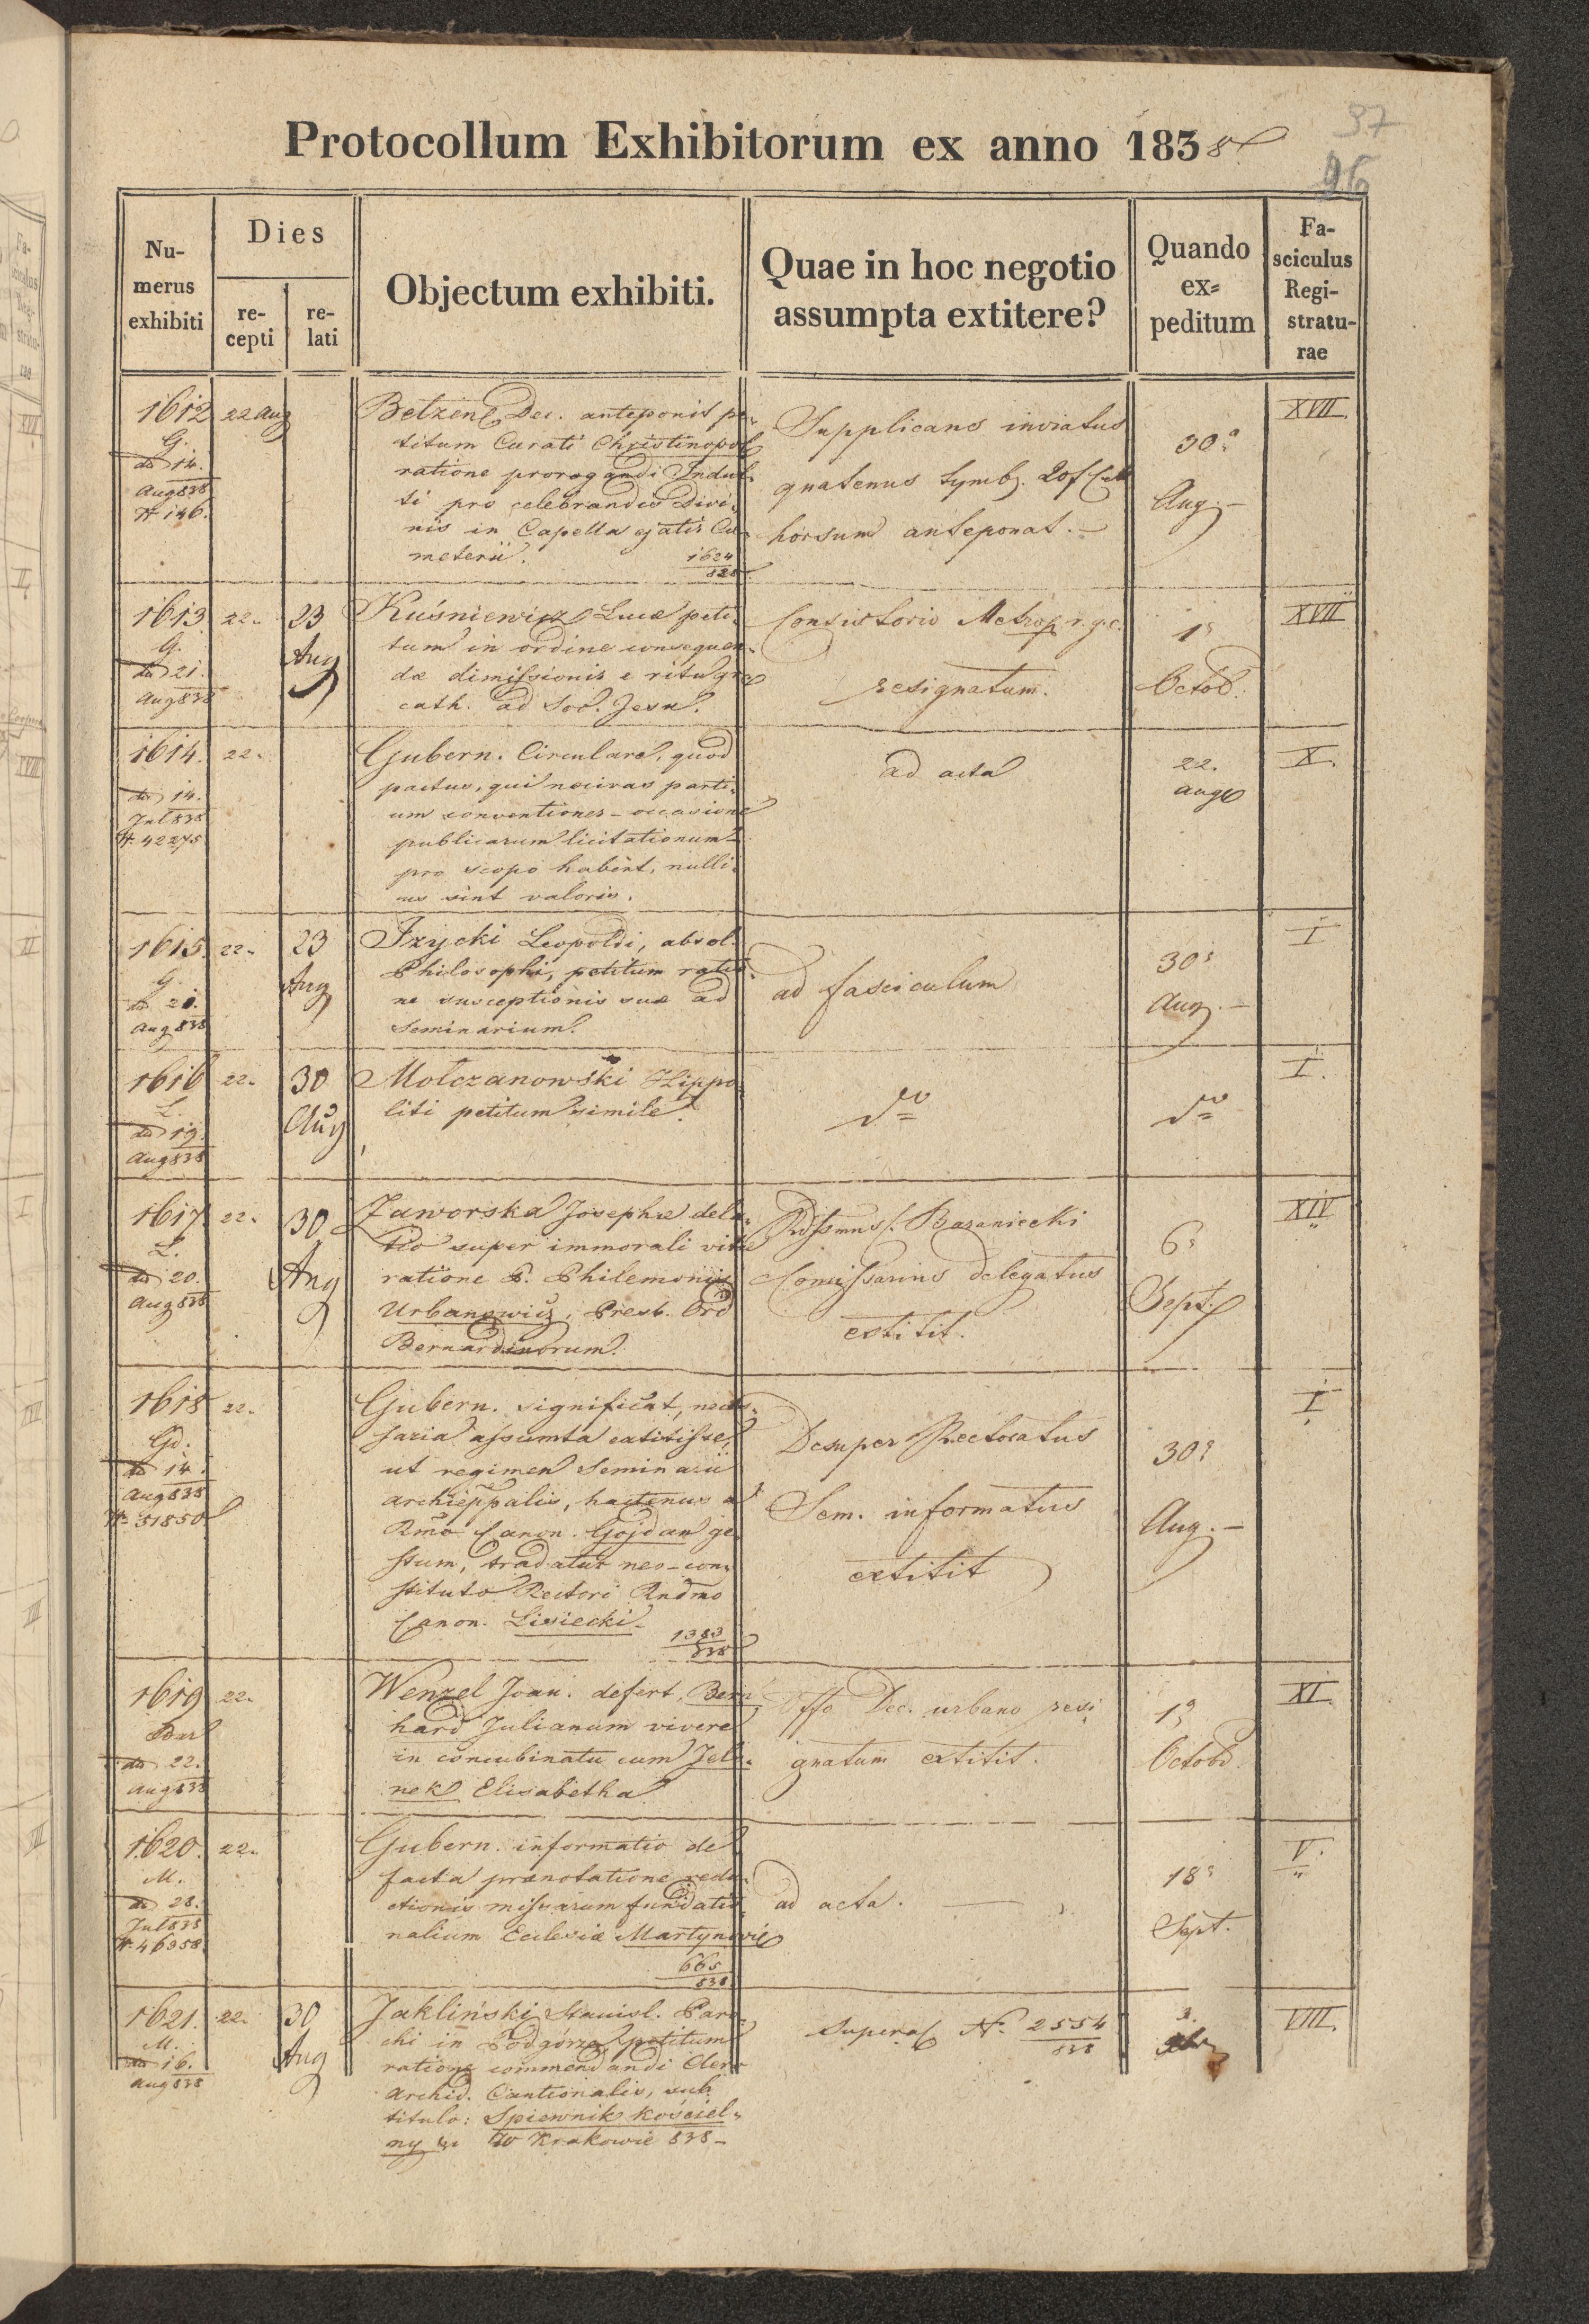 37
Protocollum Exhibitorum ex anno 1838
96
Nu-
merus
exhibiti
Dies
re-
cepti
re-
lati
Objectum exhibiti.
Quae in hoc negotio
assumpta extitere?
Quando
ex=
peditum
Fa-
sciculus
Regi-
stratu-
rae
1612
G.
dd 14.
Aug 838
N 146.
22 Aug
Betzen. Dec. anteponit pe-
titum Curati Christinopol
ratione prorogandi Indul-
ti pro celebrandis Divi-
nis in Capella ejatis Cœ-
meterii. 1624
828
Supplicans inviatus
quatenus Symb. 20f
horsum anteponat.-
30a
Aug.-
XVII.
1613
G.
dd 21.
Aug 838
22.
23
Aug
Kuśniewicz Lucæ peti-
tum in ordine consequen-
dæ dimissionis e ritu gr.
cath. ad Soc. Jesu.
Consistorio Metrop. r. g. c.
resignatum.
1a
Octob.
XVII
1614.
dd 14.
Jul 838
N. 42275
22.
Gubern. Circulare, quod
pactus, qui nocivas parti-
um conventiones - occasione
publicarum licitationum
pro scopo habent, nulli-
us sint valoris.
ad acta
22.
Aug
X.
1615.
G.
dd 21.
Aug 838
22.
23
Aug
Izycki Leopoldi, absol.
Philosophi, petitum ratio-
ne susceptionis suæ ad
Seminarium.
ad fasciculum
30a
Aug.-
I
1616
L.
dd 19.
Aug 838
22.
30
Aug
Mołczanowski Hippo-
liti petitum simile.
do
do
I.
1617
L.
dd 20.
Aug 838
22.
30
Aug
Jaworska Josephæ dela-
tio super immorali vitæ
ratione P. Philemonis
Urbanowicz, Presb. Ord
Bernardinorum.
Rdssmus Baraniecki
Comissarius delegatus
extitit.
6a
Sept.
XIV
1618
Gd.
dd 14.
Aug 838
N 51850
22.
Gubern. significat, neces-
saria assumta extitisse,
ut regimen Seminarii
archieppalis, hactenus a
Rmo Canon. Gojdan ge-
stum, tradatur neo-con-
stituto Rectori Rndmo
Canon. Lisiecki.
1383
838
Desuper Rectoratus
Sem. informatus
extitit
30a
Aug.-
I
1619
dd 22.
Aug 838
22.
Wenzel Joan. defert, Bern-
hard Julianum vivere
in concubinatu cum Jeli-
nek Elisabetha.
Offo Dec. urbano resi-
gnatum extitit.
1a
Octob.
XI.
1620.
M.
dd 28.
Jul 838
N. 46958
22.
Gubern. informatio de
facta prænotatione redu-
ctionis missarum fundatio-
nalium Ecclesiæ Martynovie
665
838
ad acta. -
18a
Sept.
V.
1621.
M.
dd 16.
Aug 838
22.
30
Aug
Jakliński Stanisl. Paro-
chi in Podgórze, petitum
ratione commendandi Clero
Archid. Cantionalis, sub
titulo: Spiewnik kościel-
ny w Krakowie 838-
supera N. 2554
838
3.
VIII.